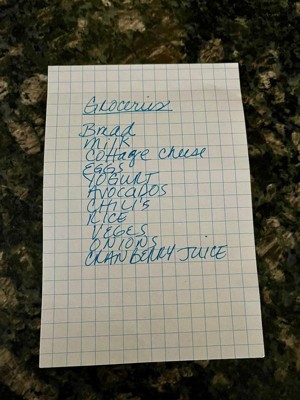 Groceries
Bread
Milk
Cottage cheese
EGGS
YOGURT
AVOCADOS
CHILI'S
RICE
VEGES
ONIONS
CRANBERRY JUICE